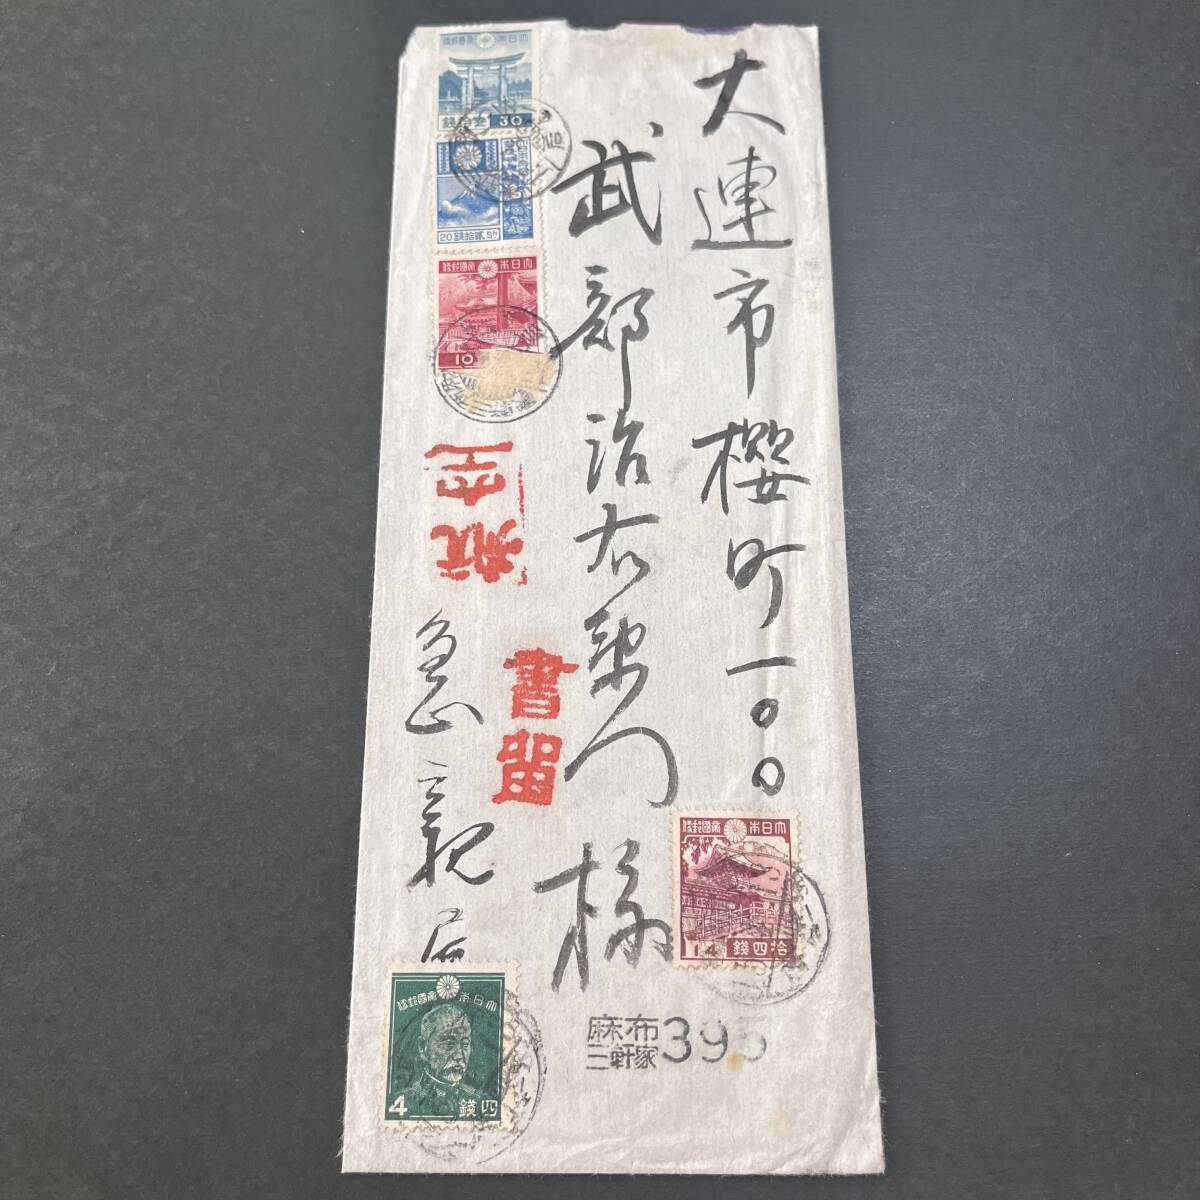 大連市櫻町一〇〇
武部治右衛門様
急親展
航空
書留
大日本帝國郵便
30
大日本帝國郵便
20 錢拾貳 Sn
大日本帝國郵便
10
大日本帝國郵便
14 錢四拾
大日本帝國郵便
4 錢四
麻布
三軒家 395